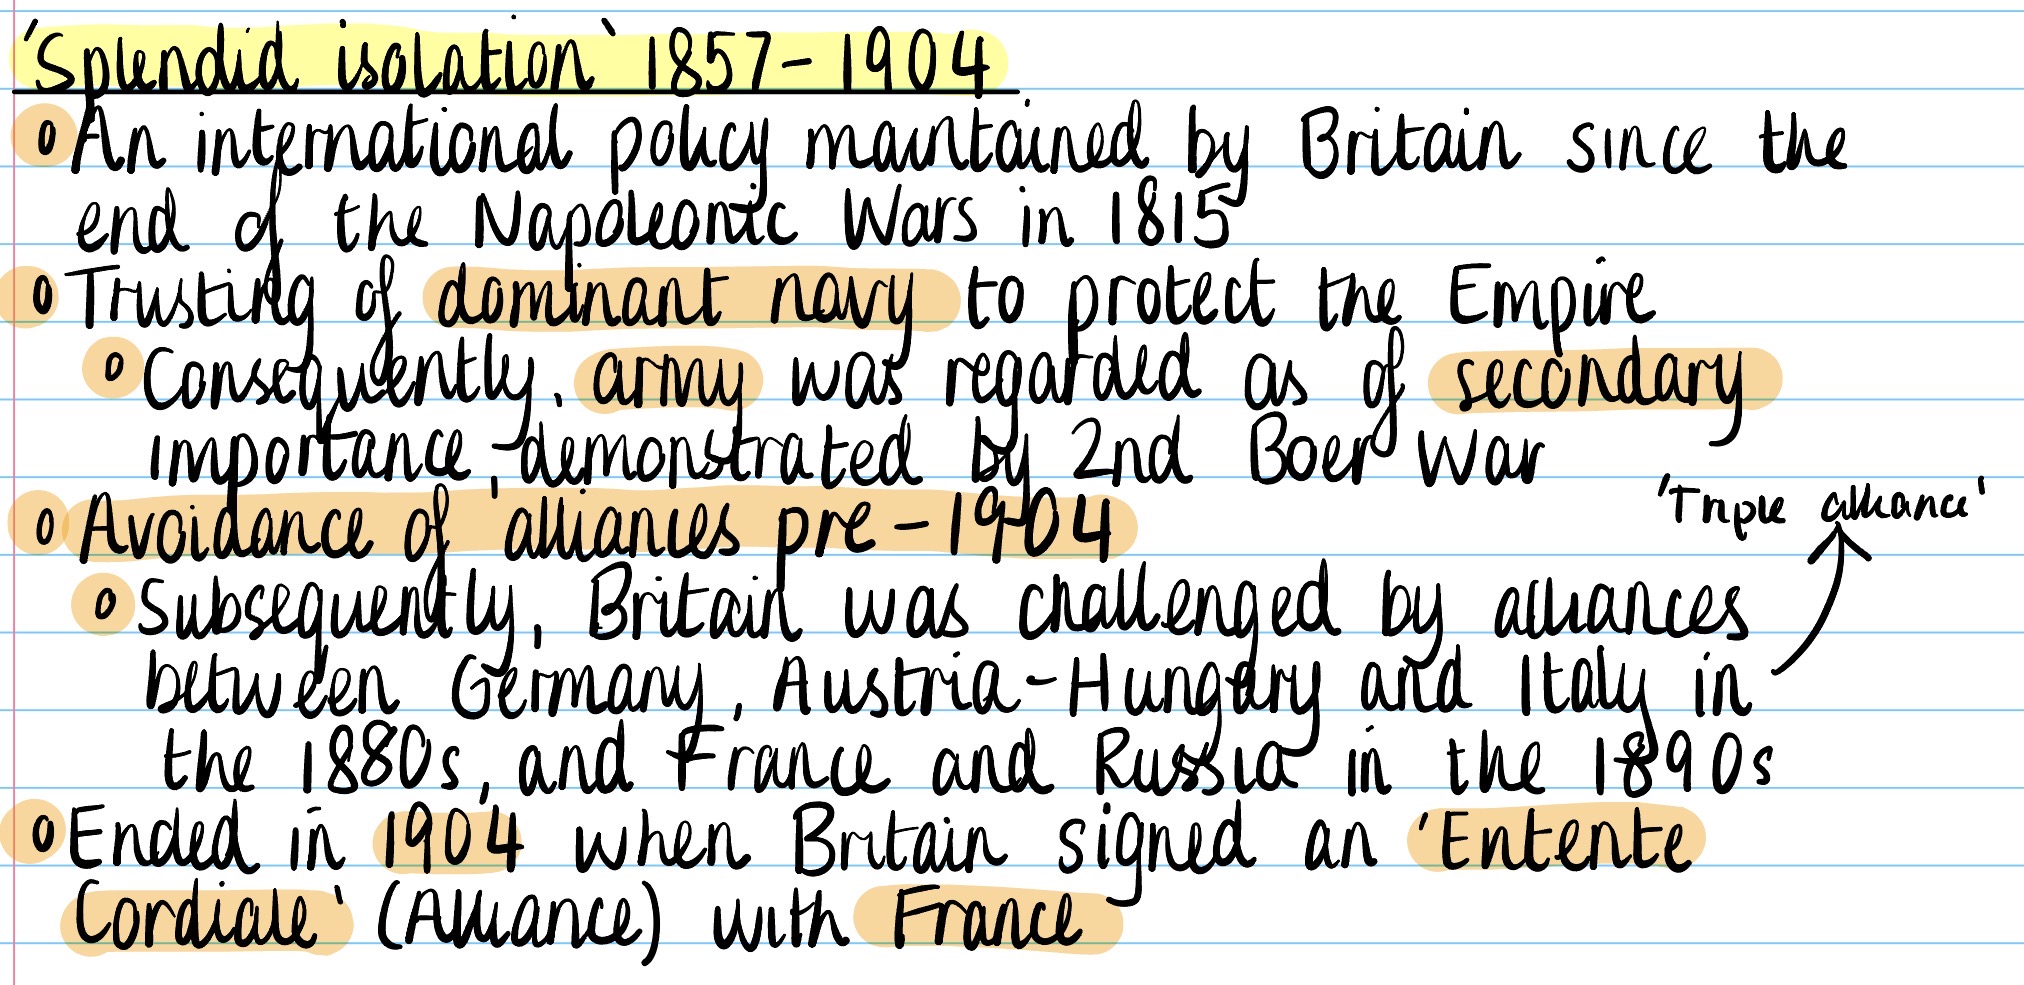 'Splendid isolation' 1857-1904
o An international policy maintained by Britain since the
end of the Napoleonic Wars in 1815
o Trusting of dominant navy to protect the Empire
o Consequently, army was regarded as of secondary
importance, demonstrated by 2nd Boer War
'Triple alliance'
o Avoidance of alliances pre-1904
o Subsequently, Britain was challenged by alliances
between Germany, Austria-Hungary and Italy in
the 1880s, and France and Russia in the 1890s
o Ended in 1904 when Britain signed an 'Entente
Cordiale' (Alliance) with France